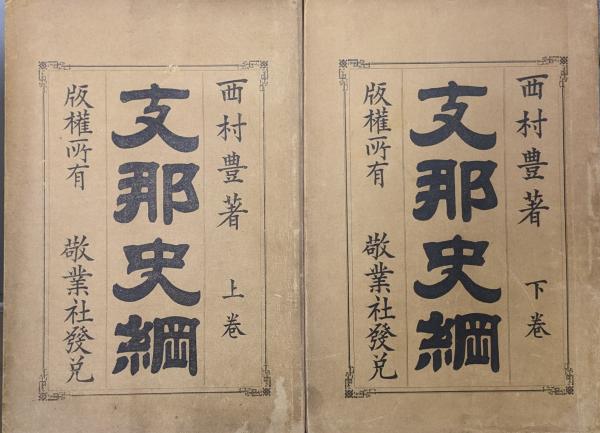 西村豊著 上卷
支那史綱
版權所有 敬業社發兌
西村豊著 下卷
支那史綱
版權所有 敬業社發兌